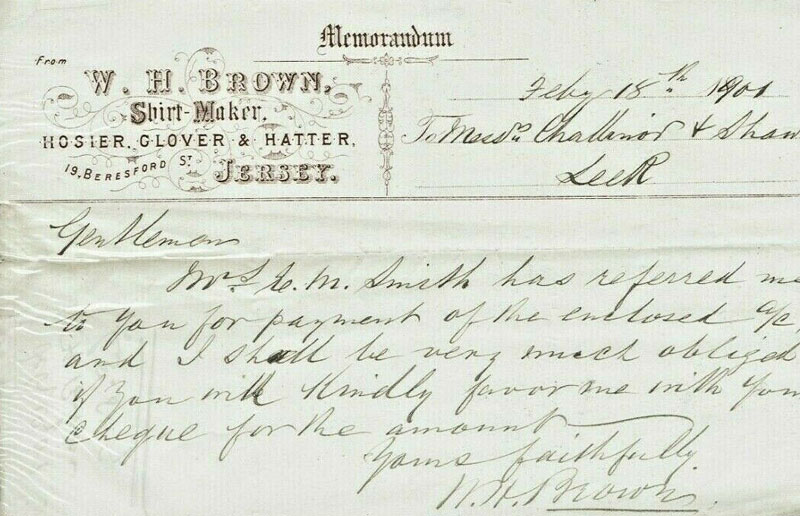 Memorandum
From
W. H. BROWN,
Shirt-Maker,
HOSIER, GLOVER & HATTER,
19, BERESFORD ST
JERSEY.
Feby 18th 1901
To Messrs Challinor & Shaw
Leek
Gentlemen
Mrs E. M. Smith has referred me
to you for payment of the enclosed a/c
and I shall be very much obliged
if you will kindly favor me with your
cheque for the amount
Yours faithfully
W. H. Brown.